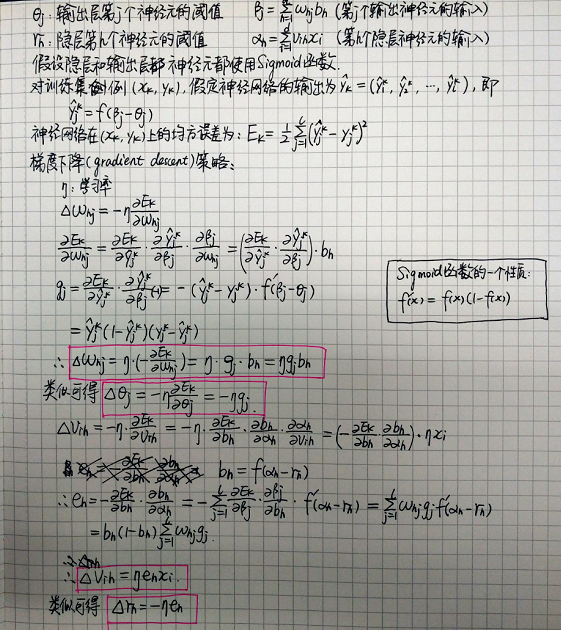 θj: 输出层第j个神经元的阈值 βj = Σ_{h=1}^{q} whj bh (第j个输出神经元的输入)
rh: 隐层第h个神经元的阈值 αh = Σ_{i=1}^{d} vih xi (第h个隐层神经元的输入)
假设隐层和输出层都神经元都使用Sigmoid函数.
对训练集例(xk, yk), 假定神经网络的输出为ŷk = (ŷ1^k, ŷ2^k, …, ŷl^k), 即
ŷj^k = f(βj - θj)
神经网络在(xk, yk)上的均方误差为: Ek = 1/2 Σ_{j=1}^{l} (ŷj^k - yj^k)²
梯度下降(gradient descent)策略:
η: 学习率
Δwhj = -η ∂Ek/∂whj
∂Ek/∂whj = ∂Ek/∂ŷj^k · ∂ŷj^k/∂βj · ∂βj/∂whj = (∂Ek/∂ŷj^k · ∂ŷj^k/∂βj) · bh
Sigmoid函数的一个性质:
f'(x) = f(x)(1-f(x))
gj = ∂Ek/∂ŷj^k · ∂ŷj^k/∂βj (-1) = -(ŷj^k - yj^k) · f'(βj - θj)
= ŷj^k (1-ŷj^k)(yj^k - ŷj^k)
∴ Δwhj = η·(-∂Ek/∂whj) = η · gj · bh = ηgjbh
类似可得 Δθj = -η ∂Ek/∂θj = -ηgj.
Δvih = -η · ∂Ek/∂vih = -η · ∂Ek/∂bh · ∂bh/∂αh · ∂αh/∂vih = (-∂Ek/∂bh · ∂bh/∂αh) · ηxi
bh = f(αh - rh)
∴ eh = -∂Ek/∂bh · ∂bh/∂αh = -Σ_{j=1}^{l} ∂Ek/∂βj · ∂βj/∂bh · f'(αh - rh) = Σ_{j=1}^{l} whj gj f'(αh - rh)
= bh(1-bh) Σ_{j=1}^{l} whj gj.
∴ Δvih = ηehxi.
类似可得 Δrh = -ηeh